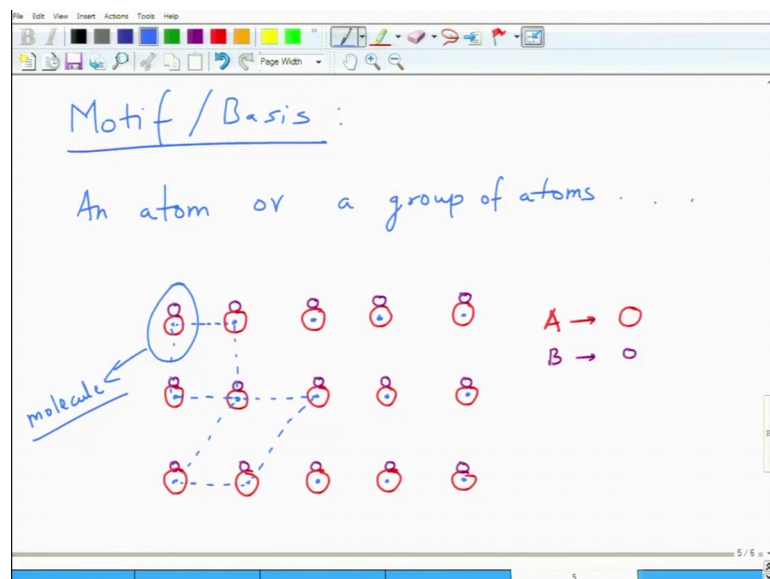 File Edit View Insert Actions Tools Help
B I
Page Width
Motif / Basis :
An atom or a group of atoms . . .
A → O
B → o
molecule
5 / 6
5